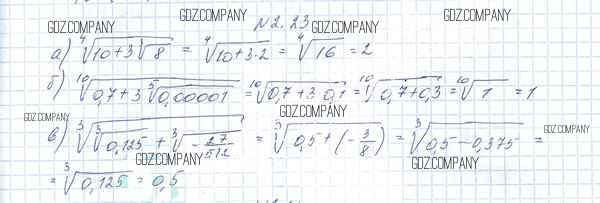 GDZ.COMPANY GDZ.COMPANY GDZ.COMPANY GDZ.COMPANY
№ 2.23
а) ⁴√(10+3∛8) = ⁴√(10+3·2) = ⁴√16 = 2
б) ¹⁰√(0,7+3 ⁵√0,00001) = ¹⁰√(0,7+3·0,1) = ¹⁰√(0,7+0,3) = ¹⁰√1 = 1
GDZ.COMPANY GDZ.COMPANY GDZ.COMPANY
в) ∛(∛0,125 + ∛(-27/512)) = ∛(0,5+(-3/8)) = ∛(0,5-0,375) =
GDZ.COMPANY GDZ.COMPANY
= ∛0,125 = 0,5